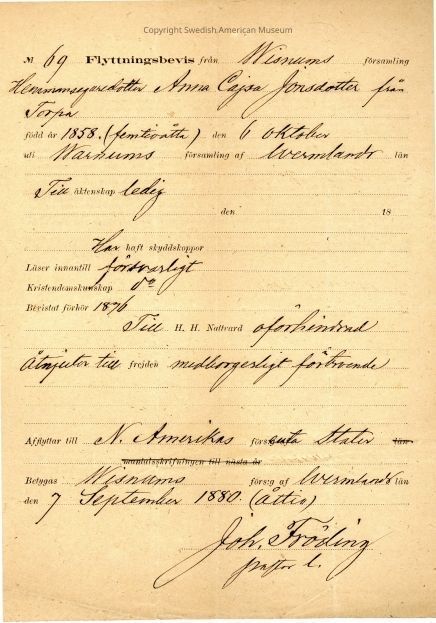 Copyright Swedish American Museum
№ 69 Flyttningsbevis från Wisnums församling
Hemmansegaredotter Anna Cajsa Jonsdotter från
Torpa
född år 1858. (femtioåtta) den 6 oktober
uti Warnums församling af Wermlands län
Till äktenskap ledig
den 18
Har haft skyddskoppor
Läser innantill försvarligt
Kristendomskunskap do
Bevistat förhör 1876
Till H. H. Nattvard oförhindrad
Åtnjuter till frejden medborgerligt förtroende
Afflyttar till N. Amerikas förenta Stater län
mantalsskrifningen till nästa år
Betygas Wisnums förs:g af Wermlands län
den 7 September 1880. (Åttio)
Joh. Fröding
pastor l.